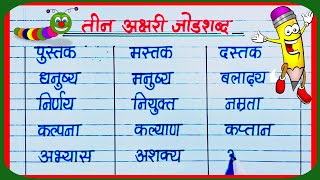 तीन अक्षरी जोडशब्द
पुस्तक मस्तक दस्तक
धनुष्य मनुष्य बलाढ्य
निर्णय नियुक्त नम्रता
कल्पना कल्याण कप्तान
अभ्यास अशक्य